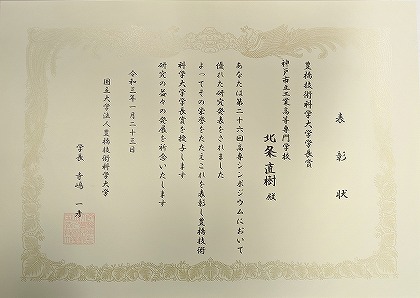 表彰状
豊橋技術科学大学学長賞
神戸市立工業高等専門学校
北条直樹 殿
あなたは第二十六回高専シンポジウムにおいて
優れた研究発表をされました
よってその栄誉をたたえこれを表彰し豊橋技術
科学大学学長賞を授与します
研究の益々の発展を祈念いたします
令和三年一月二十三日
国立大学法人豊橋技術科学大学
学長 寺嶋 一彦